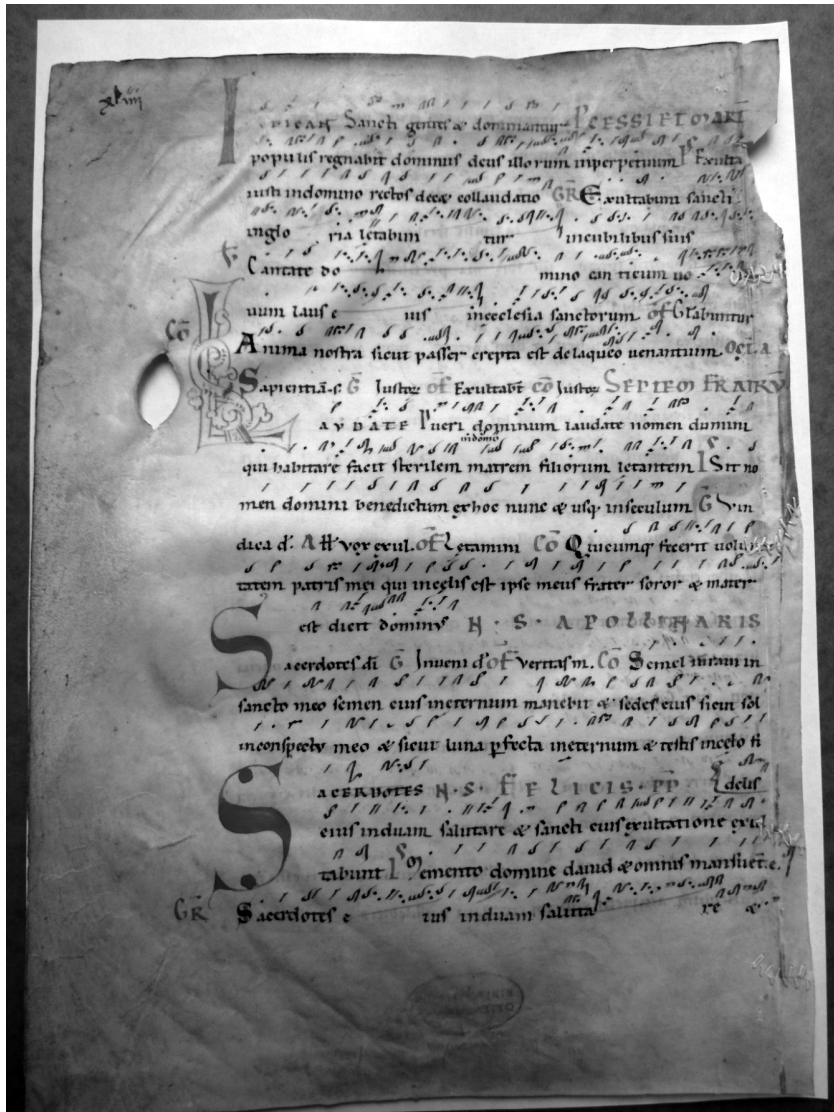 xlviiii
IUDICANT Sancti gentes & dominantur
populis regnabit dominus deus illorum inperpetuum Ps Exulta
iusti indomino rectos dec& collaudatio GR Exultabunt sancti
inglo ria letabun tur incubilibus suis
Cantate do mino canticum no
uum laus e ius inecclesia sanctorum OF Gl'abuntur
CO Anima nostra sicut passer erepta est delaqueo uenantium OCT A
Sapientiā s. G Iustor OF Exultabt CO Iustor SEPTEM FRATRV
LAUDATE Pueri dominum laudate nomen domini
indomo
qui habitare facit sterilem matrem filiorum letantem Ps Sit no
men domini benedictum exhoc nunc & usq inseculum G Vin
dica d. All vox exul. OF Letamini CO Quicumq fecerit uolun
tatem patris mei qui incelis est ipse meus frater soror & mater
est dicit dominus N · S · APOLLINARIS
Sacerdotes di G Inueni d. OF Veritas m. CO Semel iuraui in
sancto meo semen eius ineternum manebit & sedes eius sicut sol
inconspectu meo & sicut luna perfecta ineternum & testis incelo fi
SACERDOTES N · S · FELICIS · PP delis
eius induam salutare & sancti eius exultatione exul
tabunt Ps Memento domine dauid & omnis mansuet. e.
GR Sacerdotes e ius induam saluta re &